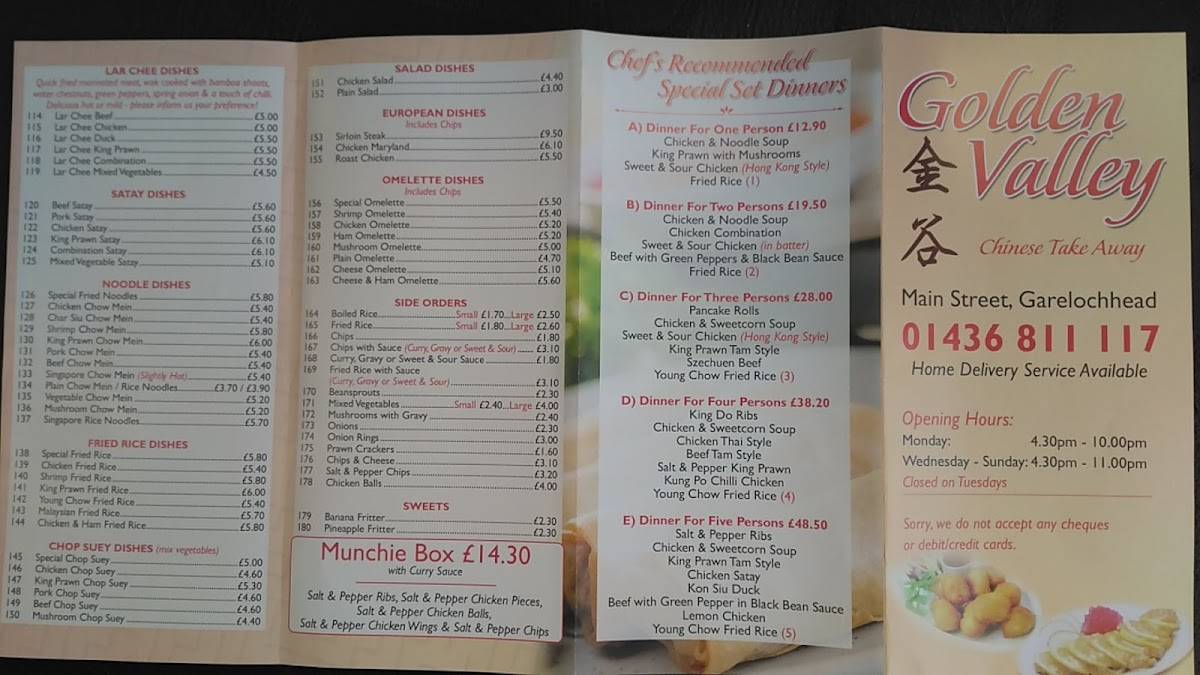 LAR CHEE DISHES
Quick fried marinated meat, wok cooked with bamboo shoots,
water chestnuts, green peppers, spring onion & a touch of chilli.
Delicious hot or mild - please inform us your preference!
114 Lar Chee Beef £5.00
115 Lar Chee Chicken £5.00
116 Lar Chee Duck £5.50
117 Lar Chee King Prawn £5.50
118 Lar Chee Combination £5.50
119 Lar Chee Mixed Vegetables £4.50
SATAY DISHES
120 Beef Satay £5.60
121 Pork Satay £5.60
122 Chicken Satay £5.60
123 King Prawn Satay £6.10
124 Combination Satay £6.10
125 Mixed Vegetable Satay £5.10
NOODLE DISHES
126 Special Fried Noodles £5.80
127 Chicken Chow Mein £5.40
128 Char Siu Chow Mein £5.40
129 Shrimp Chow Mein £5.80
130 King Prawn Chow Mein £6.00
131 Pork Chow Mein £5.40
132 Beef Chow Mein £5.40
133 Singapore Chow Mein (Slightly Hot) £5.40
134 Plain Chow Mein / Rice Noodles £3.70 / £3.90
135 Vegetable Chow Mein £5.20
136 Mushroom Chow Mein £5.20
137 Singapore Rice Noodles £5.70
FRIED RICE DISHES
138 Special Fried Rice £5.80
139 Chicken Fried Rice £5.40
140 Shrimp Fried Rice £5.80
141 King Prawn Fried Rice £6.00
142 Young Chow Fried Rice £5.40
143 Malaysian Fried Rice £5.70
144 Chicken & Ham Fried Rice £5.80
CHOP SUEY DISHES (mix vegetables)
145 Special Chop Suey £5.00
146 Chicken Chop Suey £4.60
147 King Prawn Chop Suey £5.30
148 Pork Chop Suey £4.60
149 Beef Chop Suey £4.60
150 Mushroom Chop Suey £4.40
SALAD DISHES
151 Chicken Salad £4.40
152 Plain Salad £3.00
EUROPEAN DISHES
Includes Chips
153 Sirloin Steak £9.50
154 Chicken Maryland £6.10
155 Roast Chicken £5.50
OMELETTE DISHES
Includes Chips
156 Special Omelette £5.50
157 Shrimp Omelette £5.40
158 Chicken Omelette £5.20
159 Ham Omelette £5.20
160 Mushroom Omelette £5.00
161 Plain Omelette £4.70
162 Cheese Omelette £5.10
163 Cheese & Ham Omelette £5.60
SIDE ORDERS
164 Boiled Rice Small £1.70 Large £2.50
165 Fried Rice Small £1.80 Large £2.60
166 Chips £1.80
167 Chips with Sauce (Curry, Gravy or Sweet & Sour) £3.10
168 Curry, Gravy or Sweet & Sour Sauce £1.80
169 Fried Rice with Sauce
(Curry, Gravy or Sweet & Sour) £3.10
170 Beansprouts £2.30
171 Mixed Vegetables Small £2.40 Large £4.00
172 Mushrooms with Gravy £2.40
173 Onions £2.30
174 Onion Rings £3.00
175 Prawn Crackers £1.60
176 Chips & Cheese £3.10
177 Salt & Pepper Chips £3.20
178 Chicken Balls £4.00
SWEETS
179 Banana Fritter £2.30
180 Pineapple Fritter £2.30
Munchie Box £14.30
with Curry Sauce
Salt & Pepper Ribs, Salt & Pepper Chicken Pieces,
Salt & Pepper Chicken Balls,
Salt & Pepper Chicken Wings & Salt & Pepper Chips
Chef's Recommended
Special Set Dinners
A) Dinner For One Person £12.90
Chicken & Noodle Soup
King Prawn with Mushrooms
Sweet & Sour Chicken (Hong Kong Style)
Fried Rice (1)
B) Dinner For Two Persons £19.50
Chicken & Noodle Soup
Chicken Combination
Sweet & Sour Chicken (in batter)
Beef with Green Peppers & Black Bean Sauce
Fried Rice (2)
C) Dinner For Three Persons £28.00
Pancake Rolls
Chicken & Sweetcorn Soup
Sweet & Sour Chicken (Hong Kong Style)
King Prawn Tam Style
Szechuen Beef
Young Chow Fried Rice (3)
D) Dinner For Four Persons £38.20
King Do Ribs
Chicken & Sweetcorn Soup
Chicken Thai Style
Beef Tam Style
Salt & Pepper King Prawn
Kung Po Chilli Chicken
Young Chow Fried Rice (4)
E) Dinner For Five Persons £48.50
Salt & Pepper Ribs
Chicken & Sweetcorn Soup
King Prawn Tam Style
Chicken Satay
Kon Siu Duck
Beef with Green Pepper in Black Bean Sauce
Lemon Chicken
Young Chow Fried Rice (5)
Golden
Valley
金谷
Chinese Take Away
Main Street, Garelochhead
01436 811 117
Home Delivery Service Available
Opening Hours:
Monday: 4.30pm - 10.00pm
Wednesday - Sunday: 4.30pm - 11.00pm
Closed on Tuesdays
Sorry, we do not accept any cheques
or debit/credit cards.